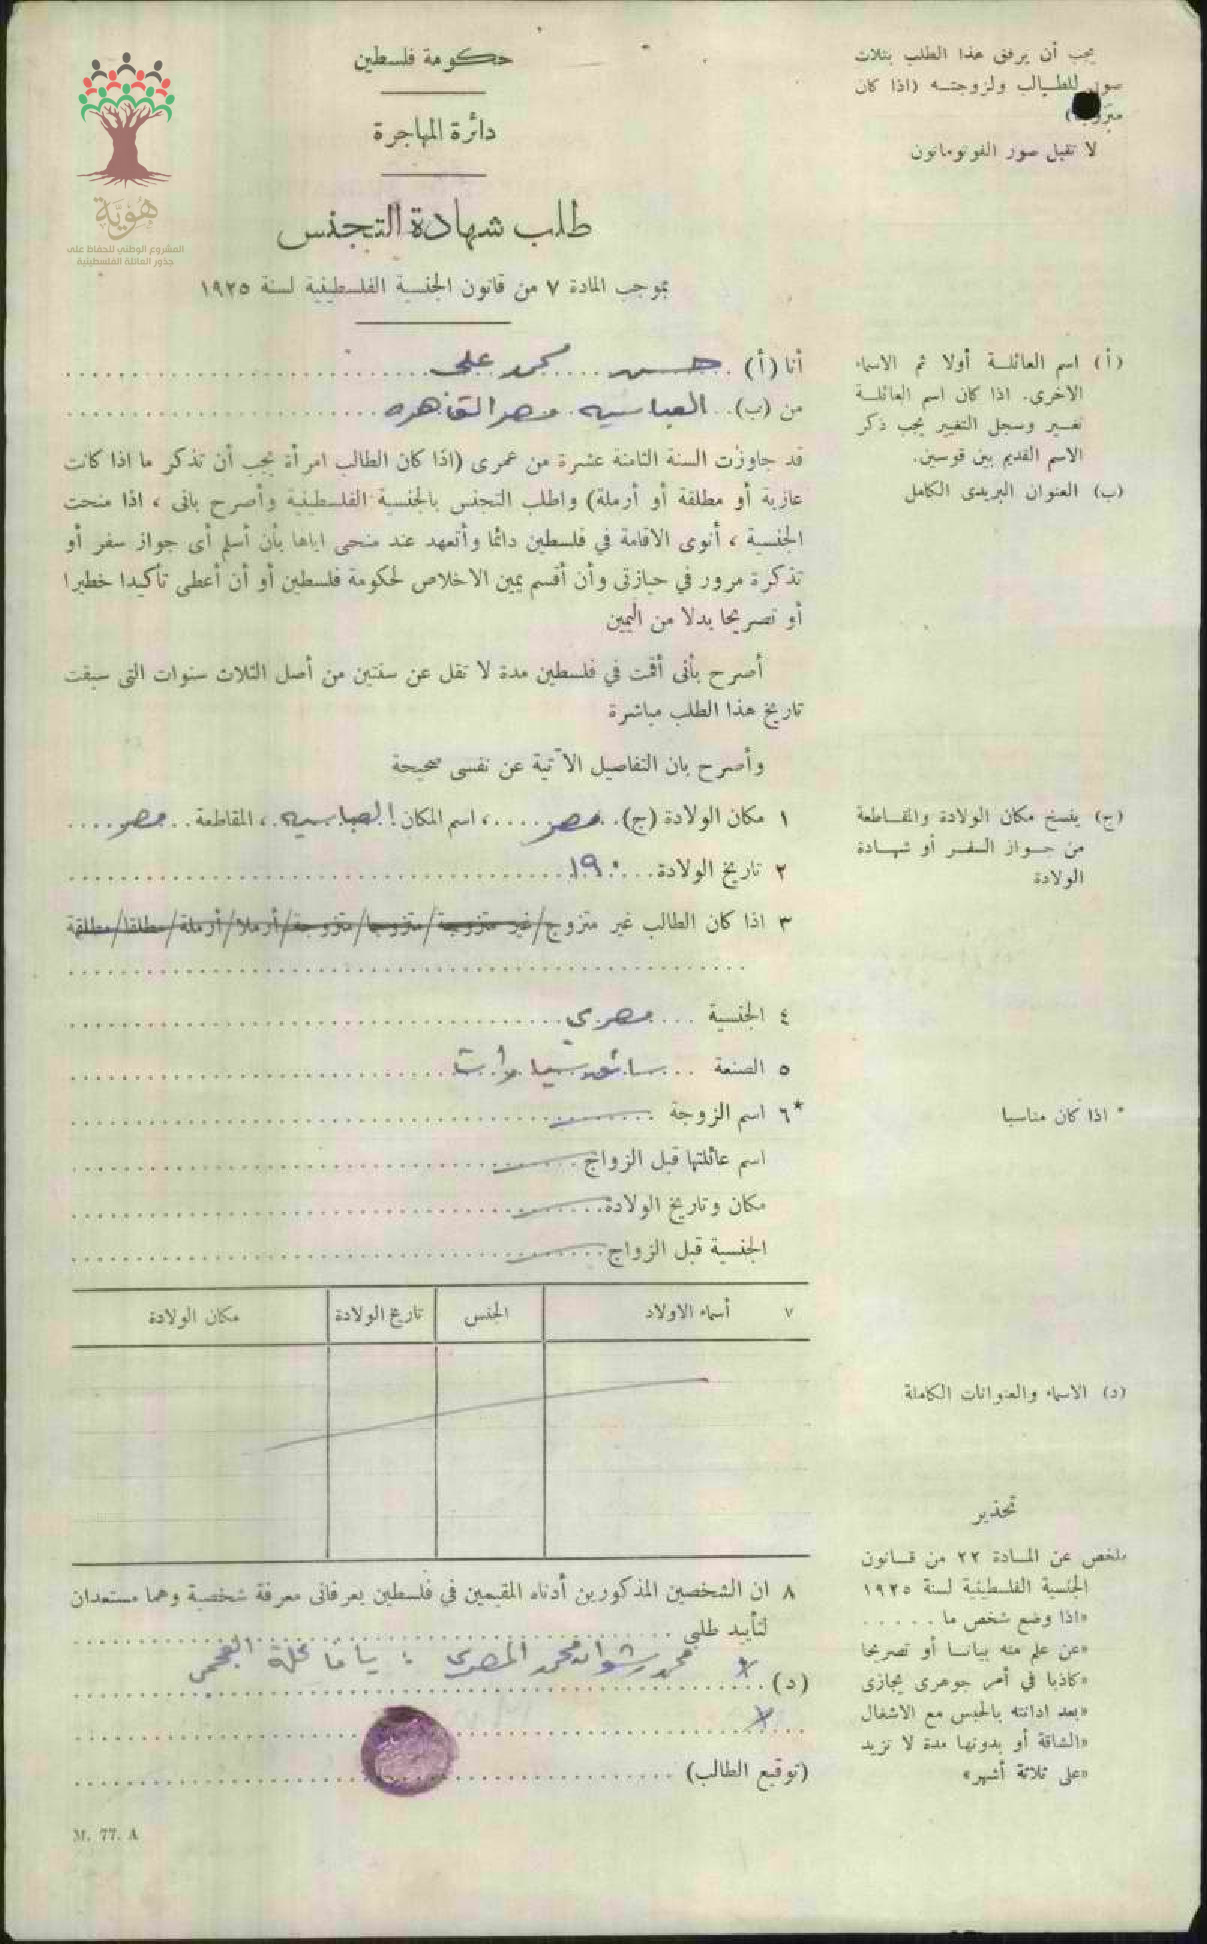 حكومة فلسطين
دائرة المهاجرة
طلب شهادة التجنس
بموجب المادة ٧ من قانون الجنسية الفلسطينية لسنة ١٩٢٥
هُوِيَّة
المشروع الوطني للحفاظ على
جذور العائلة الفلسطينية
يجب أن يرفق هذا الطلب بثلاث
صور للطالب ولزوجته (اذا كان
لا تقبل صور الفوتوماتون
(أ) اسم العائلة أولا ثم الاسماء
الاخرى. اذا كان اسم العائلة
تغير وسجل التغيير يجب ذكر
الاسم القديم بين قوسين.
(ب) العنوان البريدى الكامل
أنا (أ) حسن محمد على
من (ب) العباسيه مصر القاهره
قد جاوزت السنة الثامنة عشرة من عمرى (اذا كان الطالب امرأة يجب أن تذكر ما اذا كانت
عازبة أو مطلقة أو أرملة) واطلب التجنس بالجنسية الفلسطينية وأصرح بانى ، اذا منحت
الجنسية ، أنوى الاقامة في فلسطين دائما وأتعهد عند منحى اياها بأن أسلم أى جواز سفر أو
تذكرة مرور في حيازتى وأن أقسم يمين الاخلاص لحكومة فلسطين أو أن أعطى تأكيدا خطيرا
أو تصريحا بدلا من اليمين
أصرح بأنى أقمت في فلسطين مدة لا تقل عن سنتين من أصل الثلاث سنوات التى سبقت
تاريخ هذا الطلب مباشرة
وأصرح بان التفاصيل الآتية عن نفسى صحيحة
١ مكان الولادة (ج) مصر ، اسم المكان العباسيه ، المقاطعة مصر
(ج) ينسخ مكان الولادة والمقاطعة
من جواز السفر أو شهادة
الولادة
٢ تاريخ الولادة ١٩٠٠
٣ اذا كان الطالب غير متزوج/غير متزوجة/متزوجا/متزوجة/أرملا/أرملة/مطلقا/مطلقة
٤ الجنسية مصرى
٥ الصنعة سائق سيارات
*٦ اسم الزوجة
* اذا كان مناسبا
اسم عائلتها قبل الزواج
مكان وتاريخ الولادة
الجنسية قبل الزواج
٧ أسماء الاولاد الجنس تاريخ الولادة مكان الولادة
(د) الاسماء والعنوانات الكاملة
٨ ان الشخصين المذكورين أدناه المقيمين في فلسطين يعرفانى معرفة شخصية وهما مستعدان
لتأييد طلبي
(د) محمد رشوان محمد المصرى : يافا محلة العجمى
(توقيع الطالب)
تحذير
ملخص عن المادة ٢٢ من قانون
الجنسية الفلسطينية لسنة ١٩٢٥
«اذا وضع شخص ما . . . . .
«عن علم منه بيانا أو تصريحا
«كاذبا في أمر جوهرى يجازى
«بعد ادانته بالحبس مع الاشغال
«الشاقة أو بدونها مدة لا تزيد
«على ثلاثة أشهر»
M. 77. A